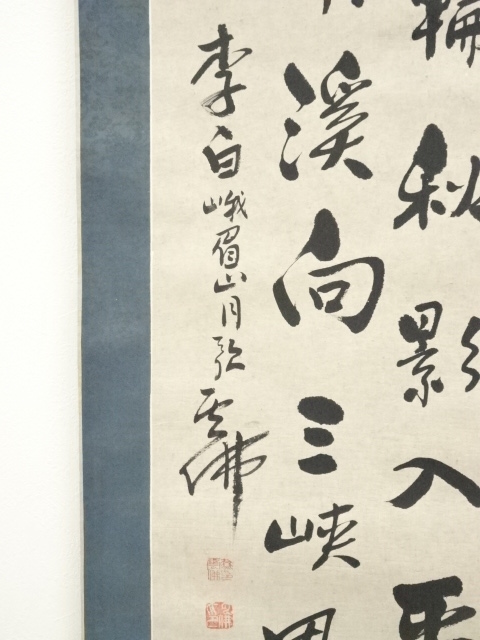 輪秋影入平
溪向三峡思
李白峨眉山月歌 雲佛